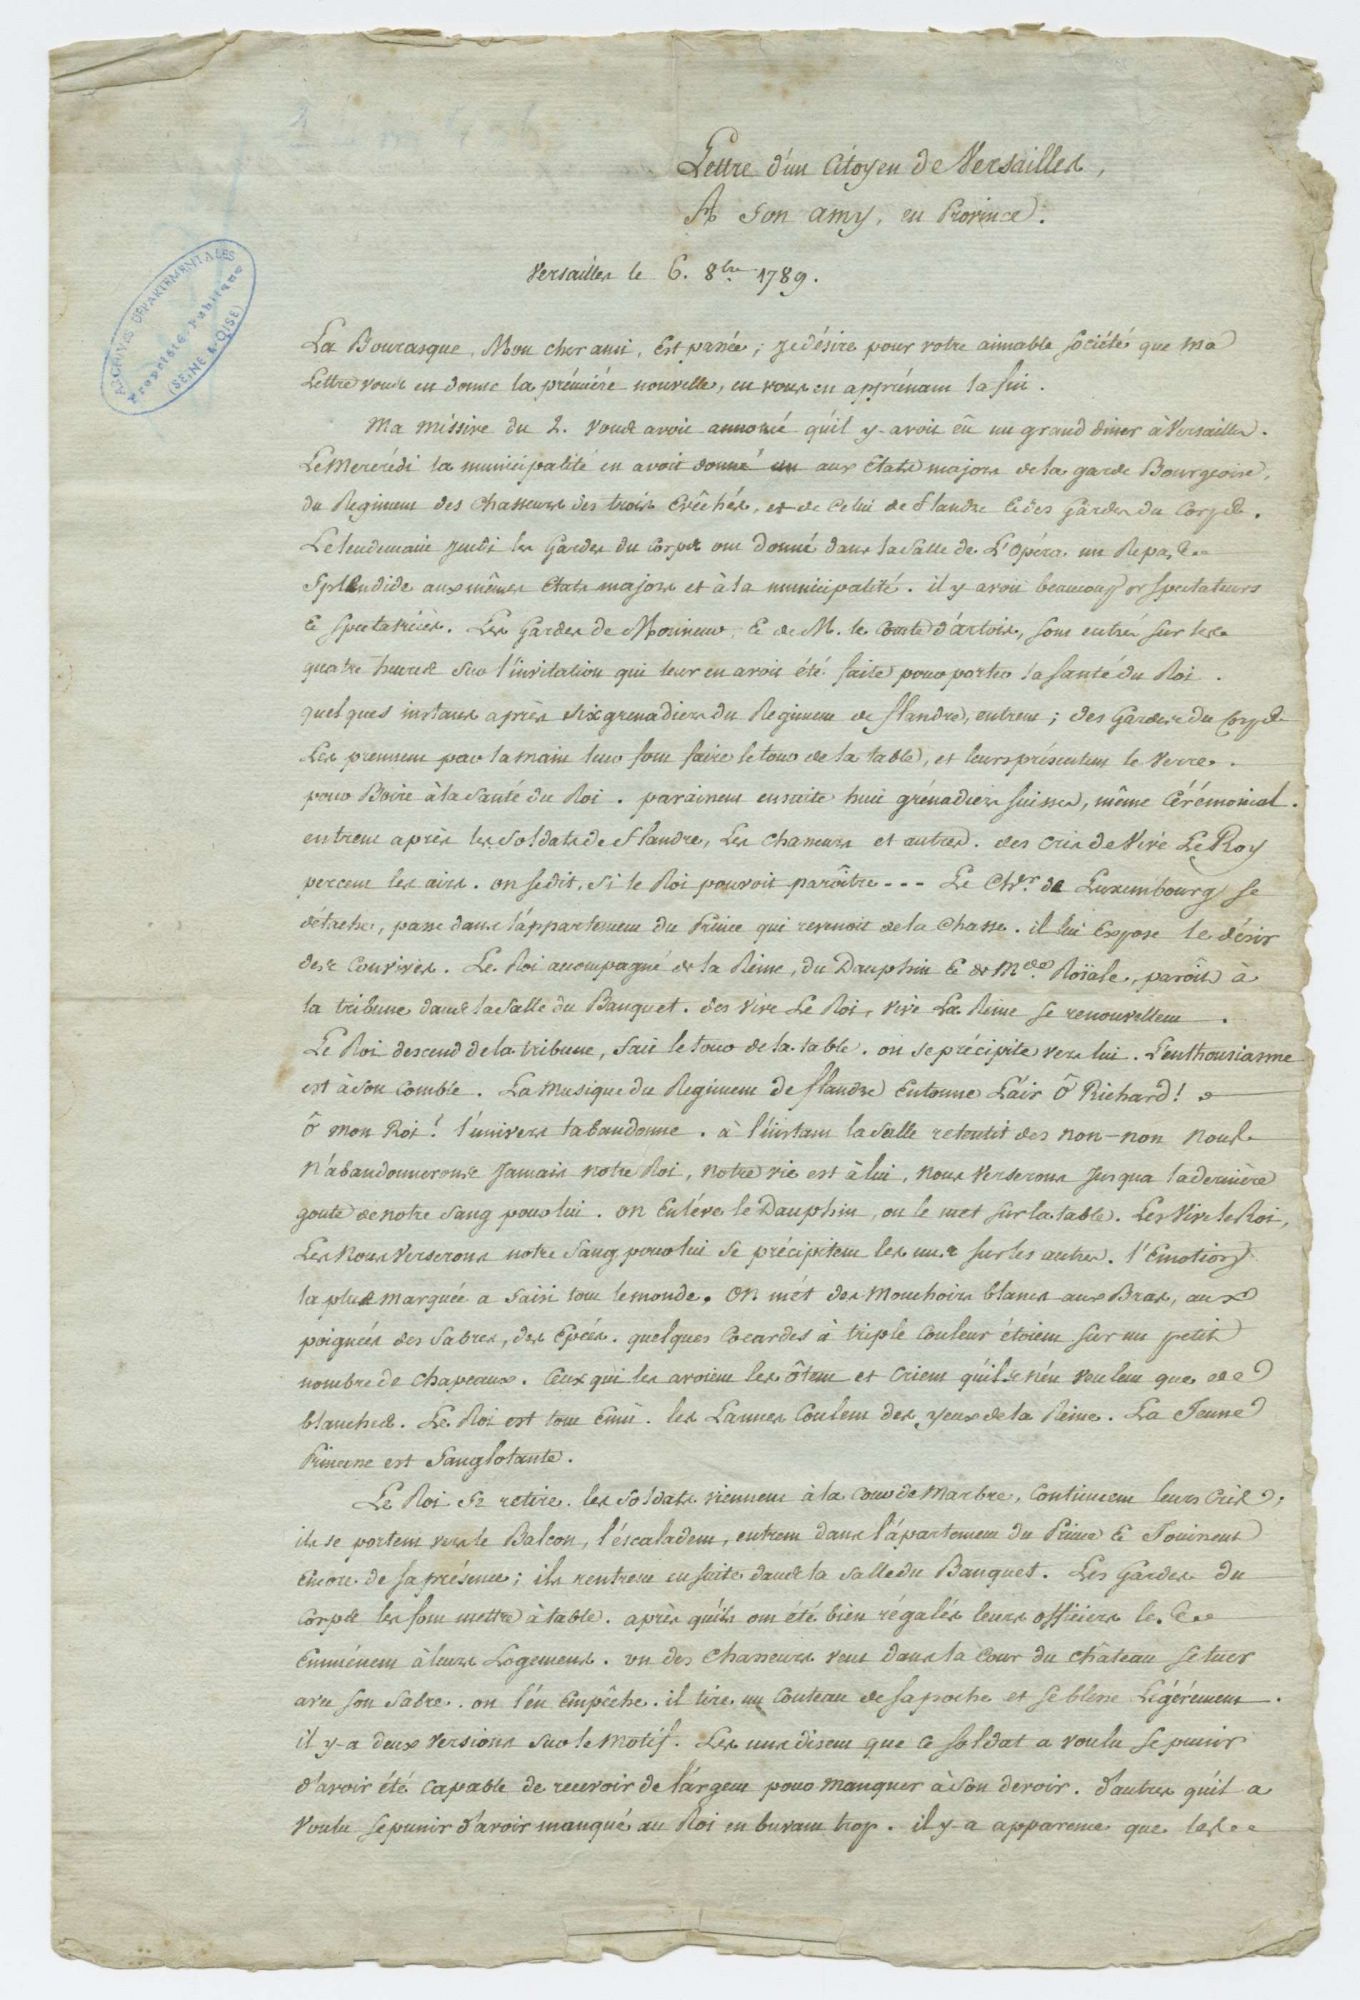 Lettre d'un Citoyen de Versailles,
A son amy, en Province.
Versailles le 6. 8bre 1789.
ARCHIVES DÉPARTEMENTALES
Propriété Publique
(SEINE & OISE)
La Bourasque, Mon cher ami, est passée; je désire pour votre aimable société que ma
Lettre vous en donne la prémiére nouvelle, en vous en apprénant la fin.
Ma missive du 2. vous avoit annoncé qu'il y avoit eû un grand diner à Versailles.
Le Mercrédi la municipalité en avoit donné un aux Etats majors de la garde Bourgeoise,
du Regiment des Chasseurs des trois Evêchés, et de celui de flandre & des Gardes du Corps.
Le lendemain Jeudi les Gardes du Corps ont donné dans la salle de L'Opéra un Repas
Splendide aux mêmes Etats majors et à la municipalité. il y avoit beaucoup de spectateurs
& spectatrices. Les Gardes de Monsieur, & de M. le Comte d'artois, sont entrés sur les
quatre heures sur l'invitation qui leur en avoit été faite pour porter la santé du Roi.
quelques instans après six grenadiers du Regiment de flandre, entrent; des Gardes du Corps
Les prennent par la main leur font faire le tour de la table, et leurs présentent le verre
pour Boire à la santé du Roi. paraissent ensuite huit grénadiers suisses, même Cérémonial.
entrent après les soldats de flandre, Les chasseurs et autres. des cris de Vive Le Roy
percent les airs. on se dit, si le Roi pouvoit paroître --- Le Chr. de Luxembourg se
détache, passe dans l'appartement du Prince qui revenoit de la Chasse. il lui Expose le désir
des Convives. Le Roi accompagné de la Reine, du Dauphin & de Mde. Roïale, paroît à
la tribune dans la salle du Banquet. des vive Le Roi, vive La Reine se renouvellent.
Le Roi descend de la tribune, fait le tour de la table. on se précipite vers lui. L'enthousiasme
est à son comble. La Musique du Regiment de flandre Entonne L'air Ô Richard!
Ô mon Roi! l'univers t'abandonne. à l'instant la salle retentit des non-non nous
n'abandonnerons Jamais notre Roi, notre vie est à lui, nous verserons Jusqua la derniére
goute de notre sang pour lui. on Enléve le Dauphin, on le met sur la table. Les Vive le Roi,
Les Nous verserons notre sang pour lui se précipitent les uns sur les autres. l'Emotion
la plus marquée a saisi tout le monde. On mét des Mouchoirs blancs aux Bras, aux
poignées des sabres, des Epées. quelques Cocardes à triple Couleur étoient sur un petit
nombre de chapeaux. Ceux qui les avoient les ôtent et crient qu'ils n'en veulent que de
blanches. Le Roi est tout Emû. les Larmes Coulent des yeux de la Reine. La Jeune
Princesse est sanglotante.
Le Roi se retire. les soldats viennent à la Cour de Marbre, Continuent leurs Cris;
ils se portent vers le Balcon, l'éscaladent, entrent dans l'apartement du Prince & Jouissent
Encore de sa présence; ils rentrent ensuite dans la salle du Banquet. Les Gardes du
Corps les font mettre à table. après qu'ils ont été bien régalés leurs officiers les
Emménent à leurs Logemens. un des chasseurs veut dans la Cour du château se tuer
avec son sabre. on l'en Empêche. il tire un Couteau de sa poche et se blesse Légérement.
il y a deux versions sur le motif. Les uns disent que ce soldat a voulu se punir
d'avoir été capable de recevoir de l'argent pour manquer à son devoir. d'autres qu'il a
voulu se punir d'avoir manqué au Roi en buvant trop. il y a apparence que les